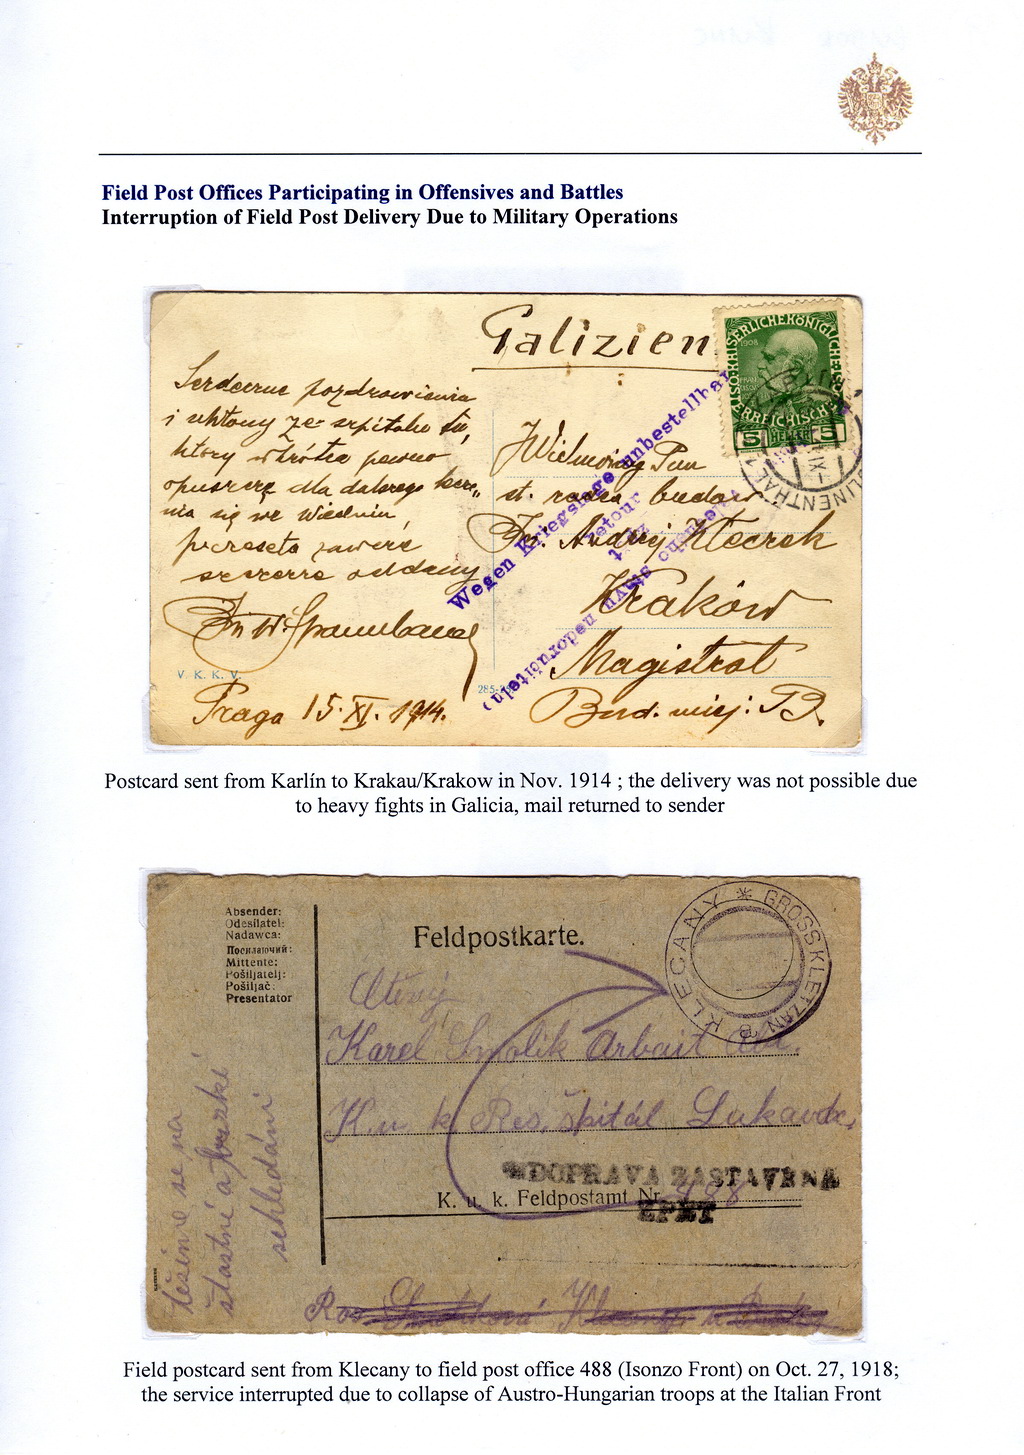 Field Post Offices Participating in Offensives and Battles
Interruption of Field Post Delivery Due to Military Operations
Galizien
Serdeczne pozdrowienia
i ukłony ze szpitala
który wkrótce pewno
opuszczę dla dalszego
się we Wiedniu,
szczerze oddany
V. K. K. V.
285
Praga 15. XI. 1914.
1908
5 HELLER 5
Wielmożny Pan
st. radca budow.
Andrzej Kłeczek
Kraków
Magistrat
Bud. miej: B.
Wegen Kriegslage unbestellbar
retour
zpět
(Nedoručitelno
Postcard sent from Karlín to Krakau/Krakow in Nov. 1914 ; the delivery was not possible due
to heavy fights in Galicia, mail returned to sender
Absender:
Odesílatel:
Nadawca:
Посилаючий:
Mittente:
Pošiljatelj:
Pošiljač:
Presentator
Feldpostkarte.
KLECANY * GROSS KLETZAN B
Ctěný
Karel Smolik Arbait Abt.
K. u k Res. špitál
K. u. k. Feldpostamt Nr. 488
DOPRAVA ZASTAVENA
ZPĚT
těšíme se na
šťastné a brzké
sehledání
Field postcard sent from Klecany to field post office 488 (Isonzo Front) on Oct. 27, 1918;
the service interrupted due to collapse of Austro-Hungarian troops at the Italian Front